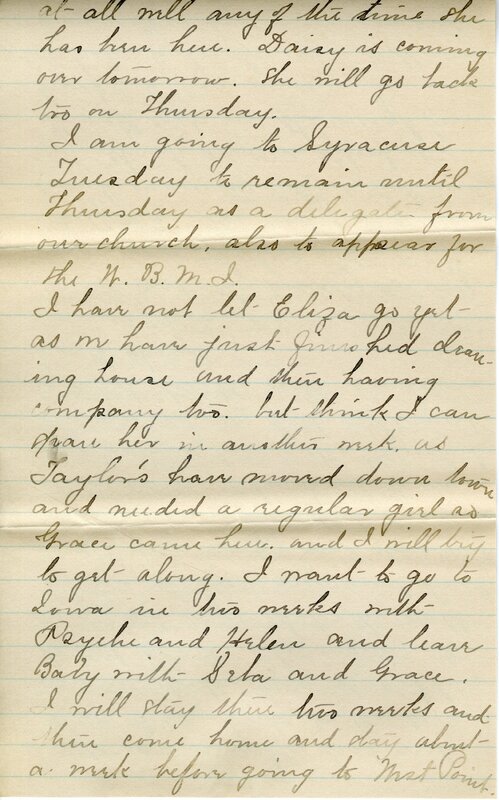 at all well any of the time she
has been here. Daisy is coming
over tomorrow. She will go back
too on Thursday.
I am going to Syracuse
Tuesday to remain until
Thursday as a delegate from
our church, also to appear for
the W. B. M. I.
I have not let Eliza go yet
as we have just finished clean-
ing house and then having
company too. but think I can
spare her in another week. as
Taylor's have moved down town
and needed a regular girl so
Grace came here. and I will try
to get along. I want to go to
Iowa in two weeks with
Psyche and Helen and leave
Baby with Seba and Grace.
I will stay there two weeks and
then come home and stay about
a week before going to West Point.